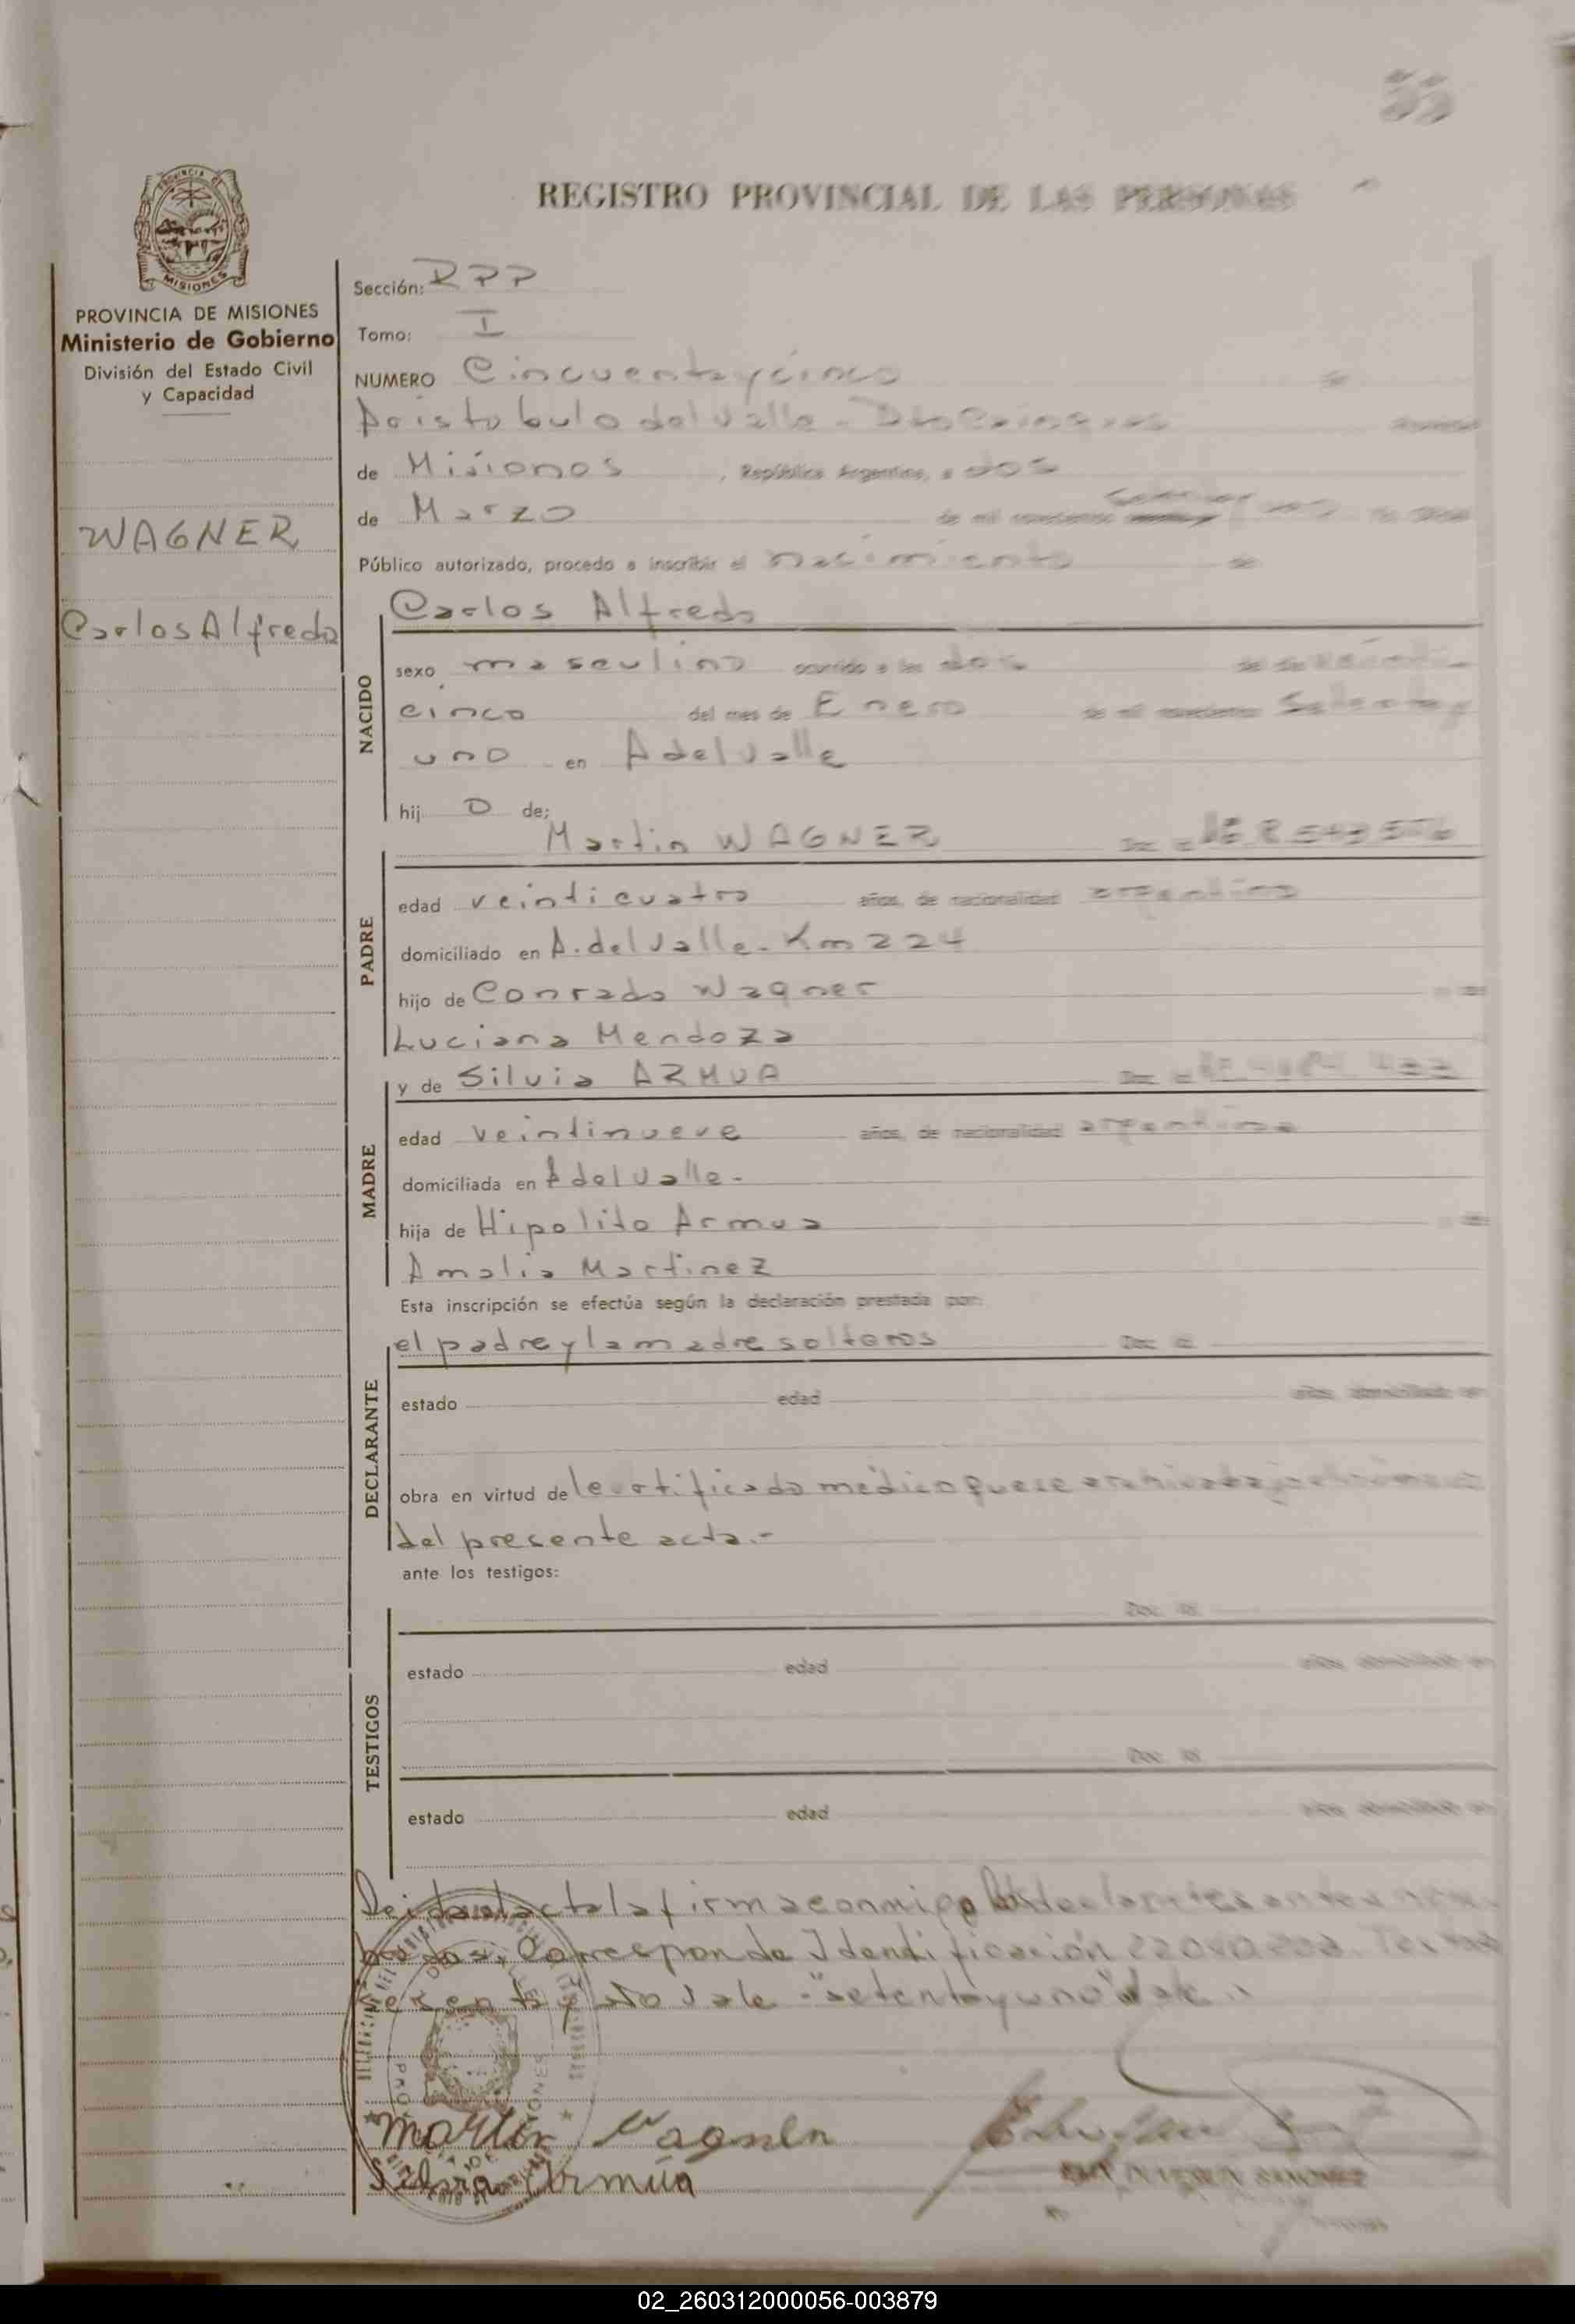 55
REGISTRO PROVINCIAL DE LAS PERSONAS
PROVINCIA DE MISIONES
Ministerio de Gobierno
División del Estado Civil
y Capacidad
WAGNER
Carlos Alfredo
Sección: RPP
Tomo: I
NUMERO Cincuenta y cinco En
Aristobulo del Valle - Dto Cainguas Provincia
de Misiones, República Argentina, a dos
de Marzo de mil novecientos setenta y uno
Público autorizado, procedo a inscribir el nacimiento de
NACIDO
Carlos Alfredo
sexo masculino ocurrido a las dos
cinco del mes de Enero de mil novecientos Setenta y
uno en A del Valle
hij o de:
PADRE
Martin WAGNER Doc. Id.
edad veinticuatro años, de nacionalidad argentina
domiciliado en A. del Valle - Km 224
hijo de Conrado Wagner
Luciana Mendoza
MADRE
y de Silvia ARMUA Doc. Id.
edad veintinueve años, de nacionalidad argentina
domiciliada en A del Valle -
hija de Hipolito Armua
Amalia Martinez
Esta inscripción se efectúa según la declaración prestada por:
DECLARANTE
el padre y la madre solteros Doc. Id.
estado edad años, domiciliado en
obra en virtud de certificado médico que se archiva bajo el número
del presente acta.-
ante los testigos:
TESTIGOS
Doc. Id.
estado edad años, domiciliado en
Doc. Id.
estado edad años, domiciliado en
Leida el acta la firma conmigo los declarantes
Corresponde Identificación
No Vale - "setenta y uno" Vale -
Martin Wagner
Silvia Armúa
02_260312000056-003879